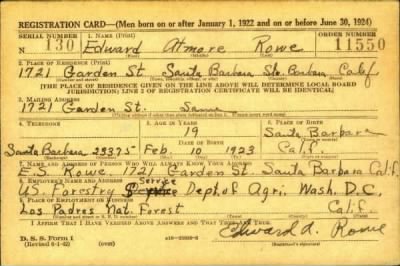 REGISTRATION CARD—(Men born on or after January 1, 1922 and on or before June 30, 1924)
SERIAL NUMBER 1. NAME (Print) ORDER NUMBER
N 130 Edward Atmore Rowe 11550
2. PLACE OF RESIDENCE (Print)
1721 Garden St. Santa Barbara Sta. Barbara Calif
[THE PLACE OF RESIDENCE GIVEN ON THE LINE ABOVE WILL DETERMINE LOCAL BOARD
JURISDICTION; LINE 2 OF REGISTRATION CERTIFICATE WILL BE IDENTICAL]
3. MAILING ADDRESS
1721 Garden St. Same
4. TELEPHONE 5. AGE IN YEARS 6. PLACE OF BIRTH
19 Santa Barbara
DATE OF BIRTH
Santa Barbara 23375 Feb. 10 1923 Calif.
7. NAME AND ADDRESS OF PERSON WHO WILL ALWAYS KNOW YOUR ADDRESS
E.S. Rowe 1721 Garden St. Santa Barbara Calif.
8. EMPLOYER'S NAME AND ADDRESS
U.S. Forestry Service Dept of Agri. Wash. D.C.
9. PLACE OF EMPLOYMENT OR BUSINESS
Los Padres Nat. Forest Calif.
I AFFIRM THAT I HAVE VERIFIED ABOVE ANSWERS AND THAT THEY ARE TRUE.
D. S. S. Form 1
Edward A. Rowe